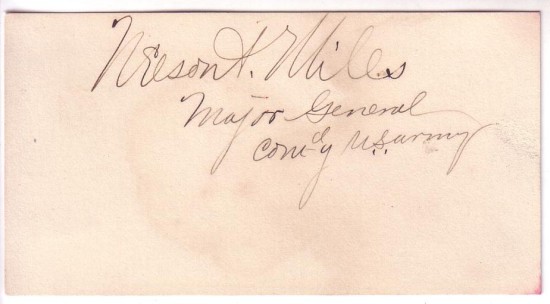 Nelson A. Miles
Major General
Comd'g U.S. Army